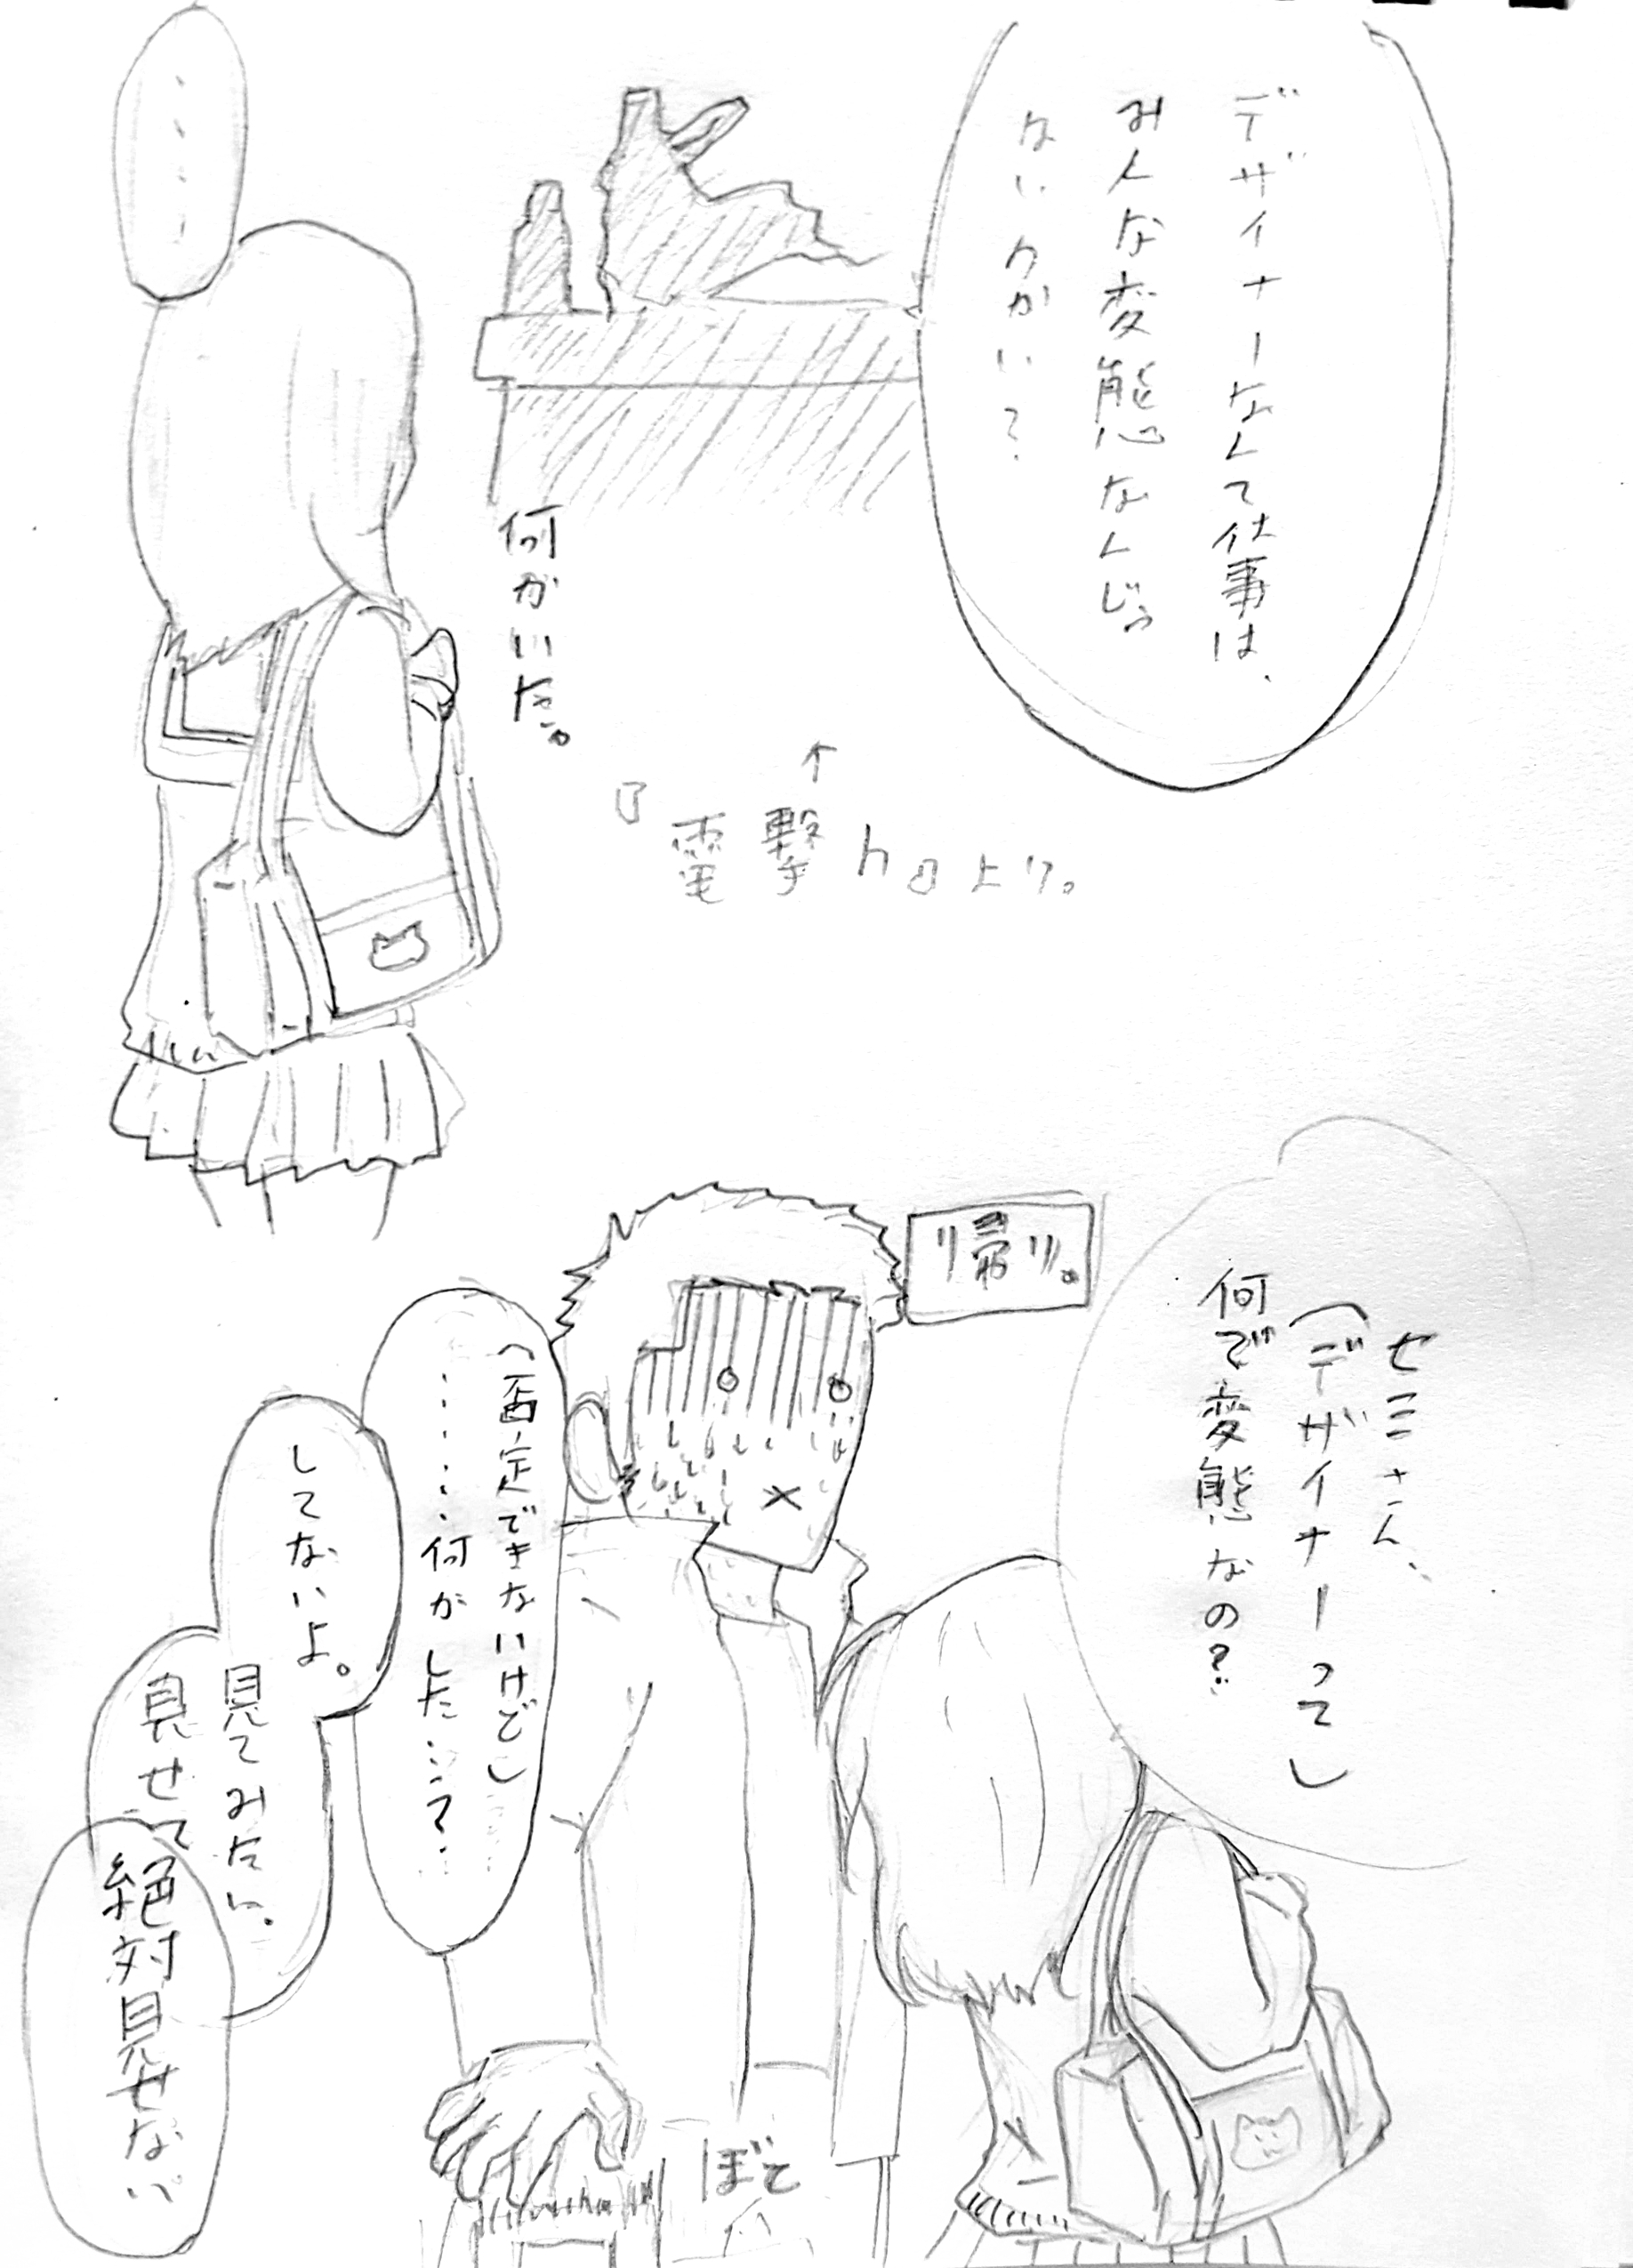 デザイナーなんて仕事は、
みんな変態なんじゃ
ないのかい？
何かいた。
↑
『電撃h』より。
・・・・・
セミさん、
(デザイナーって)
何で変態なの？
"帰り"。
(否定できないけど)
・・・・・何かした…って…
してないよ。
見てみたい。
見せて
絶対見せない
ぼて